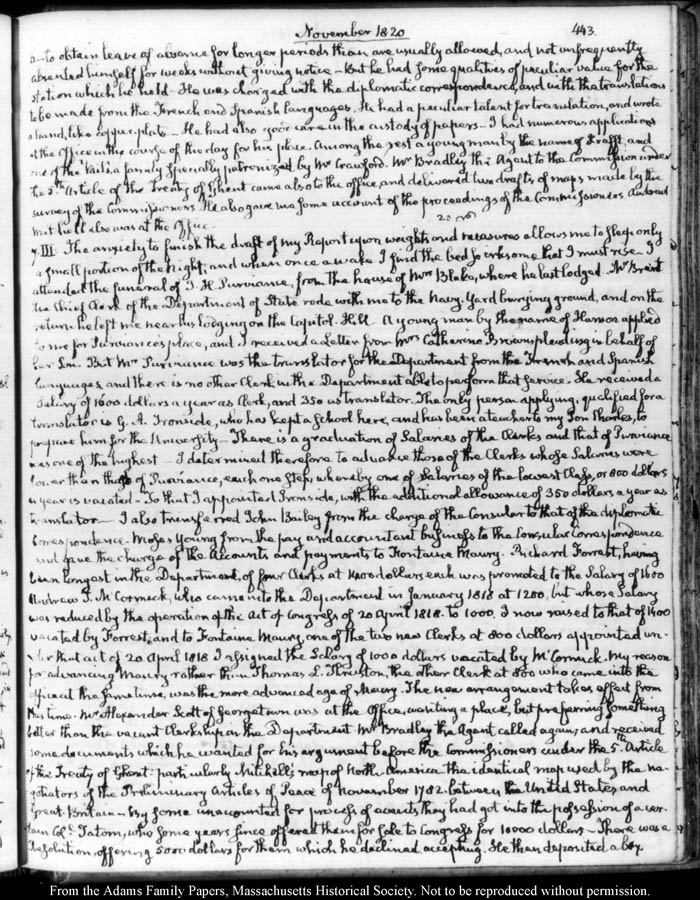 November 1820
443.
to obtain leave of absence for longer periods than are usually allowed, and not unfrequently
absented himself for weeks without giving notice - But he had some qualities of peculiar value for the
station which he held - He was charged with the diplomatic correspondence, and with the translations
to be made from the French and Spanish languages. He had a peculiar talent for translation, and wrote
a hand, like copper plate - He had also good care in the custody of papers - I had numerous applications
at the Office in the course of the day for his place. Among the rest a young man by the name of Krafft, and
one of the Vails, a family specially patronized by Mr Crawford. Mr Bradley the Agent to the Commission under
the 5th Article of the Treaty of Ghent came also to the office, and delivered two drafts of maps made by the
survey of the Commissioners. He also gave me some account of the proceedings of the Commissioners. Andrew
Mitchell also was at the Office.
7. III. The anxiety to finish the draft of my Report upon weights and measures allows me to sleep only
a small portion of the night; and when once awake I find the bed so irksome that I must rise - I
attended the funeral of J. H. Purviance, from the house of Mrs Blake, where he last lodged. Mr Brent
the Chief Clerk of the Department of State rode with me to the Navy Yard burying ground, and on the
return he left me near his lodging on the Capitol Hill - A young man by the name of Hanson applied
to me for Purviance's place, and I received a Letter from Mrs Catherine Brown pleading in behalf of
her Son. But Mr Purviance was the translator for the Department from the French and Spanish
languages, and there is no other Clerk in the Department able to perform that service. He received a
Salary of 1600 dollars a year as Clerk, and 350 as translator. The only person applying, qualified for a
translator is G. A. Ironside, who has kept a School here, and has been a teacher to my Son Charles, to
prepare him for the University - There is a graduation of Salaries of the Clerks and that of Purviance
was one of the highest - I determined therefore to advance those of the Clerks whose Salaries were
lower than that of Purviance, each one step, whereby one of Salaries of the lowest Class, or 800 dollars
a year is vacated - To that I appointed Ironside, with the additional allowance of 350 dollars a year as
translator - I also transferred John Bailey from the charge of the Consular to that of the diplomatic
Correspondence. Moses Young from the pay and accountant business to the Consular Correspondence
and gave the charge of the Accounts and payments to Fontaine Maury. Richard Forrest, having
been longest in the Department, of four Clerks at 1400 dollars each was promoted to the Salary of 1600
Andrew T. McCormick, who came into the Department in January 1818 at 1200, but whose Salary
was reduced by the operation of the Act of Congress of 20 April 1818. to 1000, I now raised to that of 1400
vacated by Forrest, and to Fontaine Maury, one of the two new Clerks at 800 dollars appointed un-
der that act of 20 April 1818 I assigned the Salary of 1000 dollars vacated by McCormick. My reason
for advancing Maury rather than Thomas L. Thruston, the other Clerk at 800 who came into the
office at the same time, was the more advanced age of Maury. The new arrangement takes effect from
this time. Mr Alexander Scott of Georgetown was at the Office, wanting a place, but preferring something
better than the vacant Clerkship in the Department. Mr Bradley the Agent called again, and received
some documents which he wanted for his argument before the Commissioners under the 5th Article
of the Treaty of Ghent: particularly Mitchell's map of North America the identical map used by the ne-
gotiators of the Preliminary Articles of Peace of November 1782. between the United States and
Great-Britain - By some unaccounted for process of events they had got into the possession of a cer-
tain Col. Tatom, who some years since offered them for sale to Congress for 10000 dollars - There was a
Resolution, offering 5000 dollars for them which he declined accepting. He then deposited a box
From the Adams Family Papers, Massachusetts Historical Society. Not to be reproduced without permission.